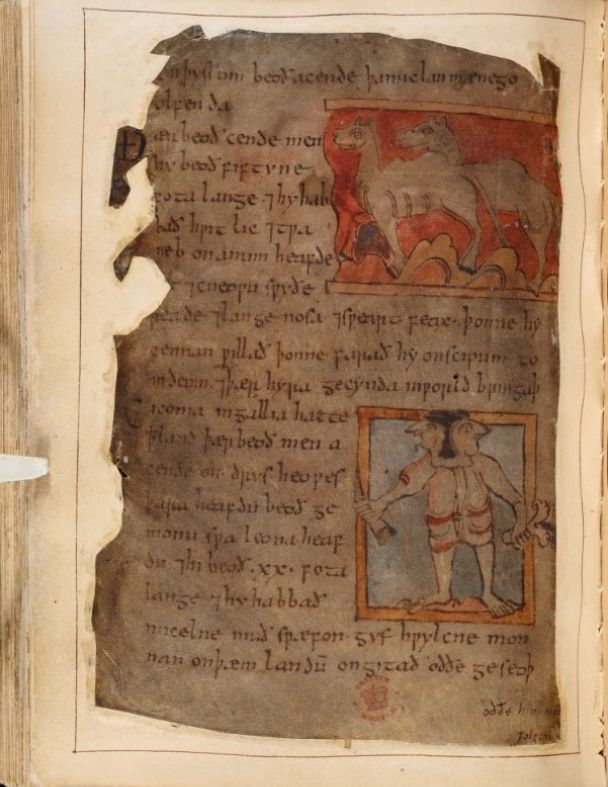 on þyssum beoð acende þa miclan mænego
olfenda
Þær beoð cende men
hy beoð fiftyne
fota lange ⁊ hy hab
bað hƿit lic ⁊ tƿa
neb on anum heafde
⁊ cneoƿu sƿyðe
reade ⁊ lange nosa ⁊ sƿeart feax · þonne hy
cennan ƿillað þonne farað hy on scipum to
indeum · ⁊ þær hyra gecynda in ƿorld bringaþ
Ciconia in gallia hatte
þland þær beoð men a
cende on drys heoƿes
þara heafdu beoð ge
monu sƿa leona heaf
du · ⁊ hi beoð · xx · fota
lange ⁊ hy habbað
micelne muð sƿa fon · gyf hƿylcne mon
nan on þæm landū ongitað oððe geseoþ
oððe